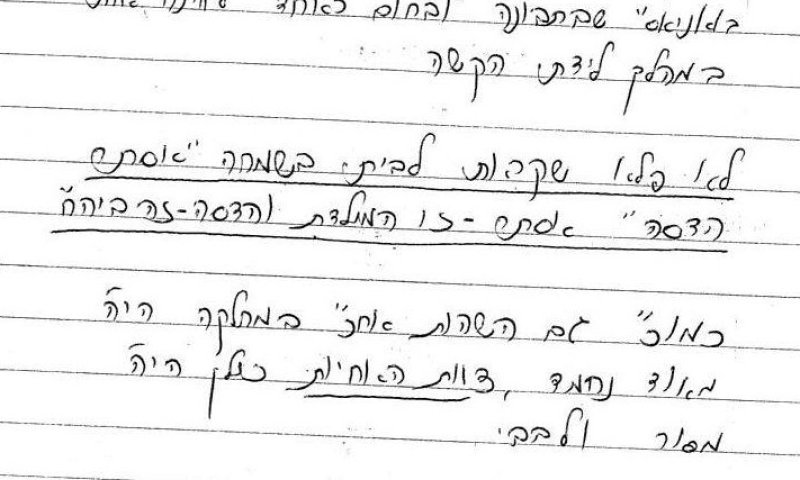 שבתבונה ובחום
במהלך לידתי הקשה
לא פלא שקראתי לביתי בשמחה "אסתר
הדסה" אסתר - זו המילדת והדסה - זה ביה"ח
כמו"כ גם השהות אח"כ במחלקה היה
מאוד נחמד, צוות האחיות כולן היה
מסור ולבבי.